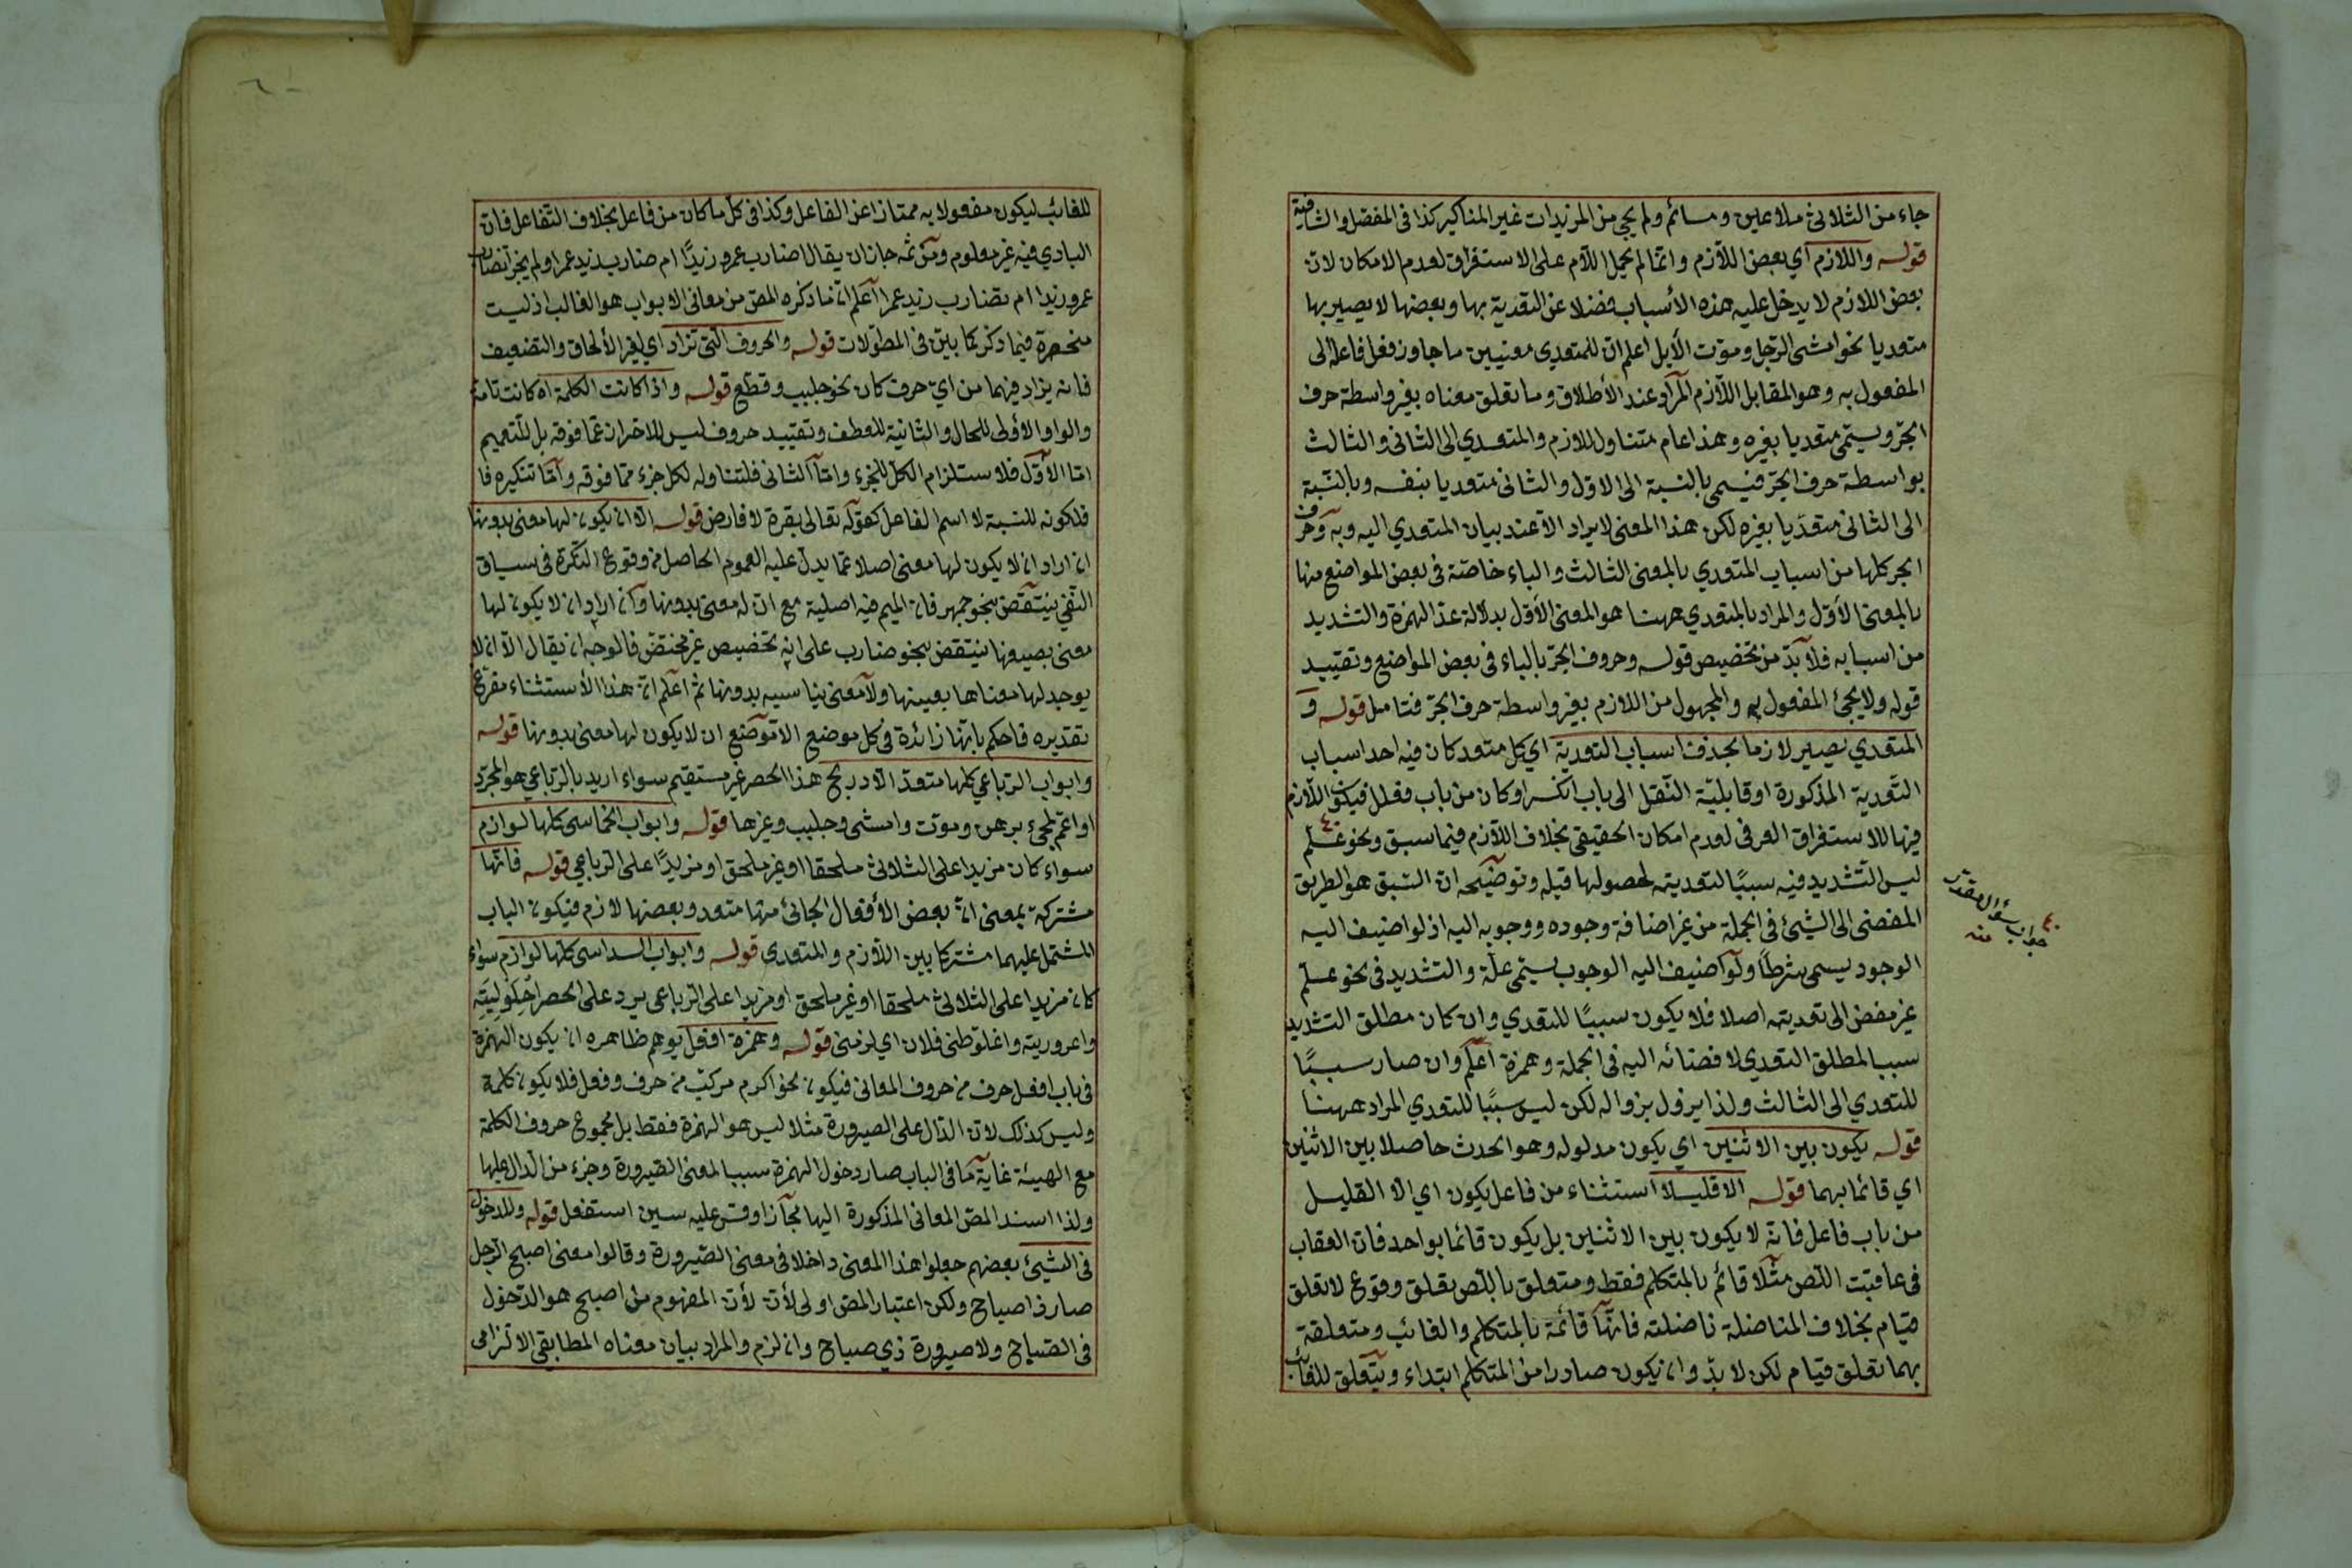 جاء من الثلاثى ملاعين ومسائم ولم يجى من المزيدات غير المناكير كذا فى المفصل والشافية
قوله واللازم اي بعض اللازم وانما لم يحمل اللام على الاستغراق لعدم الامكان لان
بعض اللازم لا يدخل عليه هذه الأسباب فضلا عن التعدية بها وبعضها لا يصير بها
متعديا نحو امشى الرجل وموّت الأبل اعلم ان للمتعدي معنيين ما جاوز فعل فاعله الى
المفعول به وهو المقابل اللازم المراد عند الأطلاق وما تعلق معناه بغير واسطة حرف
الجرّ ويسمّى متعديا بغيره وهذا عام متناول للازم والمتعدي الى الثانى والثالث
بواسطة حرف الجرّ فيسمى بالنسبة الى الاوّل والثانى متعديا بنفسه وبالنّسبة
الى الثانى متعدّيا بغيره لكن هذا المعنى لا يراد الاّ عند بيان المتعدي اليه وبه وحرف
الجر كلها من اسباب المتعدي بالمعنى الثالث والباء خاصّة فى بعض المواضع منها
بالمعنى الأوّل والمراد بالمتعدي ههنا هو المعنى الأوّل بدلالة عدّ الهمزة والتشديد
من اسبابه فلا بدّ من تخصيص قوله وحروف الجرّ بالباء فى بعض المواضع وتقييد
قوله ولا يجئ المفعول به والمجهول من اللازم بغير واسطة حرف الجرّ فتامل قوله و
المتعدي يصير لازما بحذف اسباب التعدية اي كل متعد كان فيه احد اسباب
التّعدية المذكورة او قابليّة النّقل الى باب انكسر او كان من باب فعلل فيكون اللازم
فيها للاستغراق العرفى لعدم امكان الحقيقى بخلاف اللازم فيما سبق ونحو علّم
ليس التّشديد فيه سببًا لتعديته لحصولها قبله وتوضيحه ان السّبق هو الطريق
المفضى الى الشيئ فى الجملة من غير اضافة وجوده ووجوبه اليه اذ لو اضيف اليه
الوجود يسمى شرطًا ولو اضيف اليه الوجوب يسمّى علّة والتشديد فى نحو علّم
غير مفض الى تعديته اصلا فلا يكون سببًا للتعدي وان كان مطلق التشديد
سببا لمطلق التعدي لافضائه اليه فى الجملة وهمزة اعلم وان صار سببًا
للتعدي الى الثالث ولذا يزول بزواله لكن ليس سببًا للتعدي المراد ههنا
قوله يكون بين الاثنين اي يكون مدلوله وهو الحدث حاصلا بين الاثنين
اي قائما بهما قوله الا قليلا استثناء من فاعل يكون اي الا القليل
من باب فاعل فانه لا يكون بين الاثنين بل يكون قائما بواحد فان العقاب
فى عاقبت اللّص مثلا قائم بالمتكلم فقط ومتعلق باللّص تعلق وقوع لا تعلق
قيام بخلاف المناضلة ناضلته فانّها قائمة بالمتكلم والغائب ومتعلقة
بهما تعلق قيام لكن لا بدّ وان يكون صادرا من المتكلم ابتداء ويتعلق للغائب
جواب سؤال مقدر
منه
للغائب ليكون مفعولا به ممتازا عن الفاعل وكذا فى كل ما كان من فاعل بخلاف التّفاعل فان
البادي فيه غير معلوم ومن ثمه جاز ان يقال اضارب عمرو زيدًا ام ضارب زيد عمرا ولم يجز اتضارب
عمرو زيدا ام تضارب زيد عمرا اعلم انّ ما ذكره المص من معانى الابواب هو الغالب اذ ليست
منحصرة فيما ذكر كما بيّن فى المطوّلات قوله والحروف الّتى تزاد اي لغير الألحاق والتضعيف
فانه يزاد فيهما من ايّ حرف كان نحو جلبب وقطّع قوله واذا كانت الكلمة اه كانت تامة
والواو الأولى للحال والثانية للعطف وتقييد حروف ليس للاحتراز عمّا فوقه بل للتّعميم
امّا الاوّل فلاستلزام الكلّ للجزء وامّا الثانى فلتناوله لكل جزء ممّا فوقه وامّا تنكيره فا
فلكونه للنسبة لا اسم الفاعل كقوله تعالى بقرة لا فارض قوله الا ان يكون لها معنى بدونها
ان اراد ان لا يكون لها معنى اصلا عمّا يدلّ عليه العموم الحاصل من وقوع النّكرة فى سياق
النّفى ينتقض بنحو جمهر فان الميم فيه اصلية مع ان له معنى بدونها وان اراد ان لا يكون لها
معنى بصيغها ينتقض بنحو ضارب على انه تخصيص غير مختصّ فالوجه ان يقال الا ان لا
يوجد لها معناها بعينها ولا معنى يناسبه بدونها ثم اعلم انّ هذا الأستثناء مفرّغ
تقديره فاحكم بانّها زائدة فى كل موضع الا موضع ان لا يكون لها معنى بدونها قوله
وابواب الرّباعي كلها متعدّ الا دربج هذا الحصر غير مستقيم سواء اريد بالرّباعي هو المجرّد
او اعمّ لمجئ برهن وموّت وامشى وجلبب وغيرها قوله وابواب الخماسى كلها لوازم
سواء كان مزيدا على الثلاثى ملحقا او غير ملحق او مزيدًا على الرّباعي قوله فانّها
مشتركة بمعنى انّ بعض الأفعال الجائئ منها متعد وبعضها لازم فيكون الباب
المشتمل عليهما مشتركا بين اللازم والمتعدى قوله وابواب السداسى كلّها لوازم سواء
كان مزيدا على الثلاثى ملحقا او غير ملحق او مزيدا على الرّباعى يرد على الحصر احلوليته
واعروريته واغلوطنى فلان اي لزمنى قوله وهمزة افعل يوهم ظاهره ان يكون الهمزة
فى باب افعل حرف من حروف المعانى فيكون نحو اكرم مركّب من حرف وفعل فلا يكون كلمة
وليس كذلك لان الدّال على الصيرورة مثلا ليس هو الهمزة فقط بل مجموع حروف الكلمة
مع الهيئة غاية ما فى الباب صار دخول الهمزة سببا لمعنى الصّيرورة وجزء من الدّال عليها
ولذا اسند المص المعانى المذكورة اليها مجازا وقس عليه سين استفعل قوله وللدخول
فى الشيئ بعضهم جعلوا هذا المعنى داخلا فى معنى الصّيرورة وقالوا معنى اصبح الرّجل
صار ذا صباح ولكن اعتبار المص اولى لأن لأن المفهوم من اصبح هو الدّخول
فى الصّباح ولا صيرورة ذي صباح وان لزم والمراد بيان معناه المطابقى الالتزامى